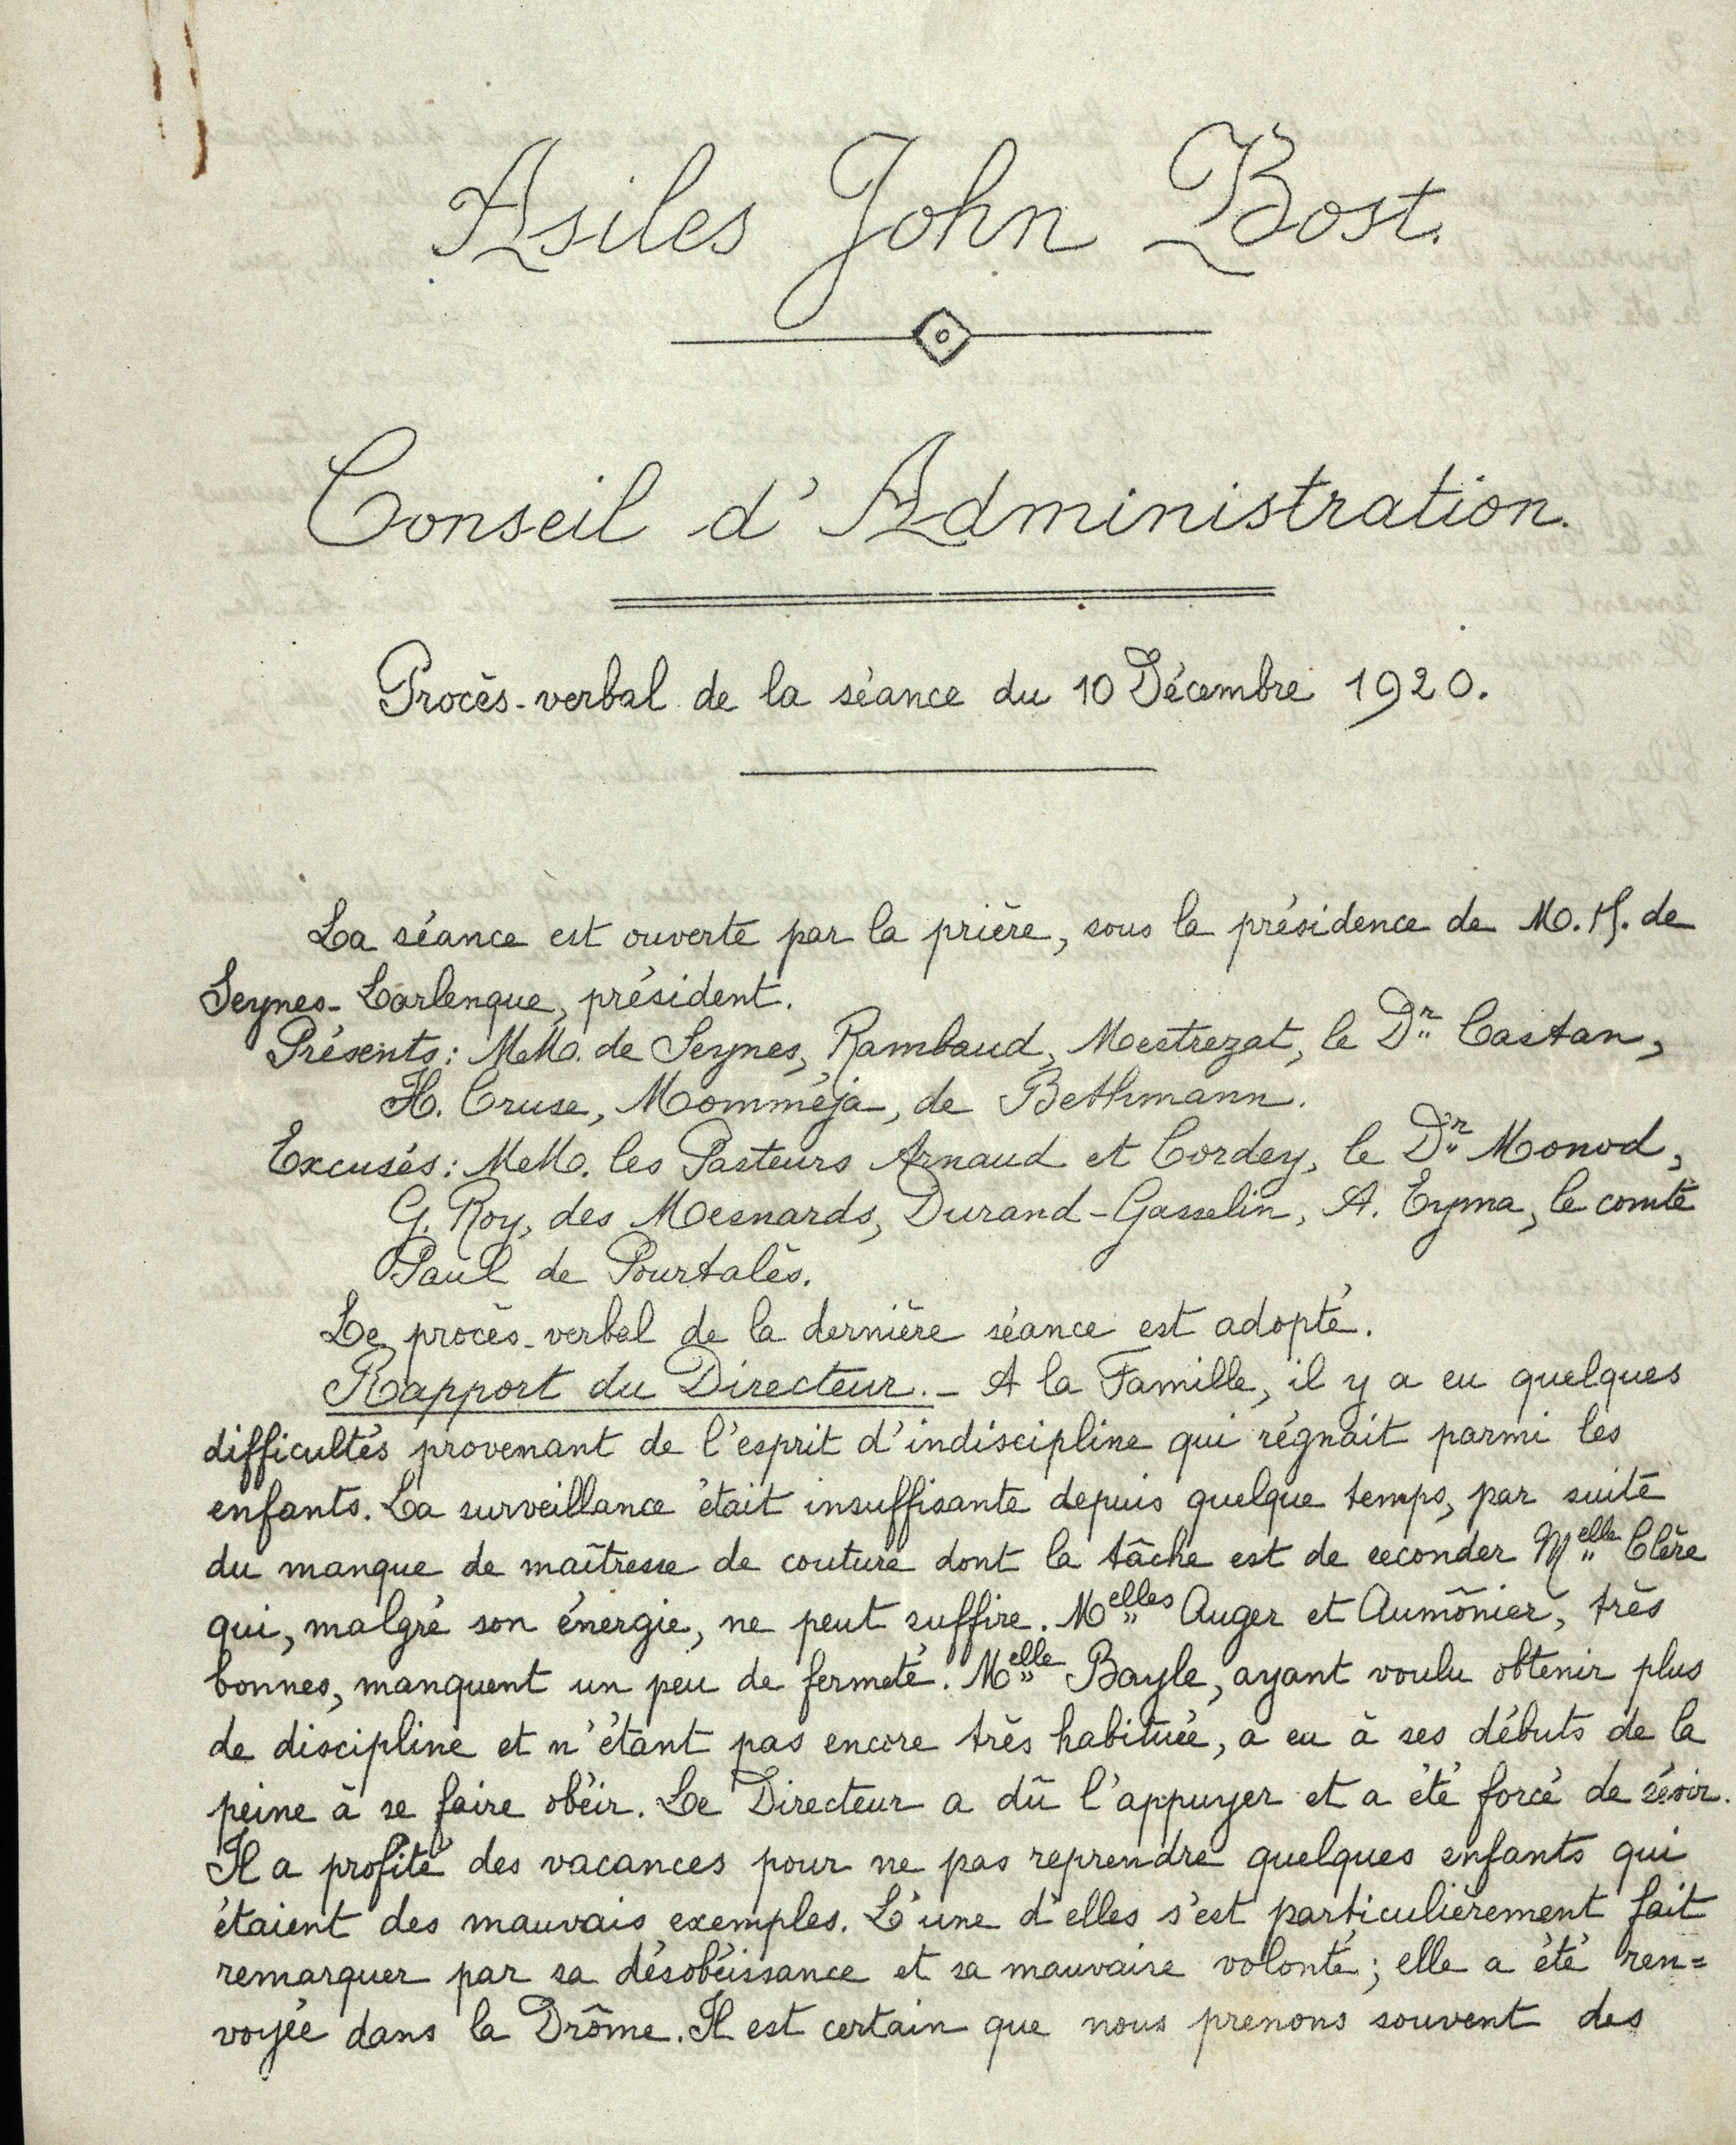 Asiles John Bost.
Conseil d'Administration.
Procès-verbal de la séance du 10 Décembre 1920.
La séance est ouverte par la prière, sous la présidence de M. H. de
Seynes-Larlenque, président.
Présents: MM. de Seynes, Rambaud, Mestrezat, le Dr Castan,
H. Cruse, Momméja, de Bethmann.
Excusés: MM. les Pasteurs Arnaud et Cordey, le Dr Monod,
G. Roy, des Mesnards, Durand-Gasselin, A. Eyma, le comte
Paul de Pourtalès.
Le procès-verbal de la dernière séance est adopté.
Rapport du Directeur.- A la Famille, il y a eu quelques
difficultés provenant de l'esprit d'indiscipline qui régnait parmi les
enfants. La surveillance était insuffisante depuis quelque temps, par suite
du manque de maîtresse de couture dont la tâche est de seconder Melle Clère
qui, malgré son énergie, ne peut suffire. Melles Auger et Aumônier, très
bonnes, manquent un peu de fermeté. Melle Bayle, ayant voulu obtenir plus
de discipline et n'étant pas encore très habituée, a eu à ses débuts de la
peine à se faire obéir. Le Directeur a dû l'appuyer et a été forcé de sévir.
Il a profité des vacances pour ne pas reprendre quelques enfants qui
étaient des mauvais exemples. L'une d'elles s'est particulièrement fait
remarquer par sa désobéissance et sa mauvaise volonté; elle a été ren=
voyée dans la Drôme. Il est certain que nous prenons souvent des